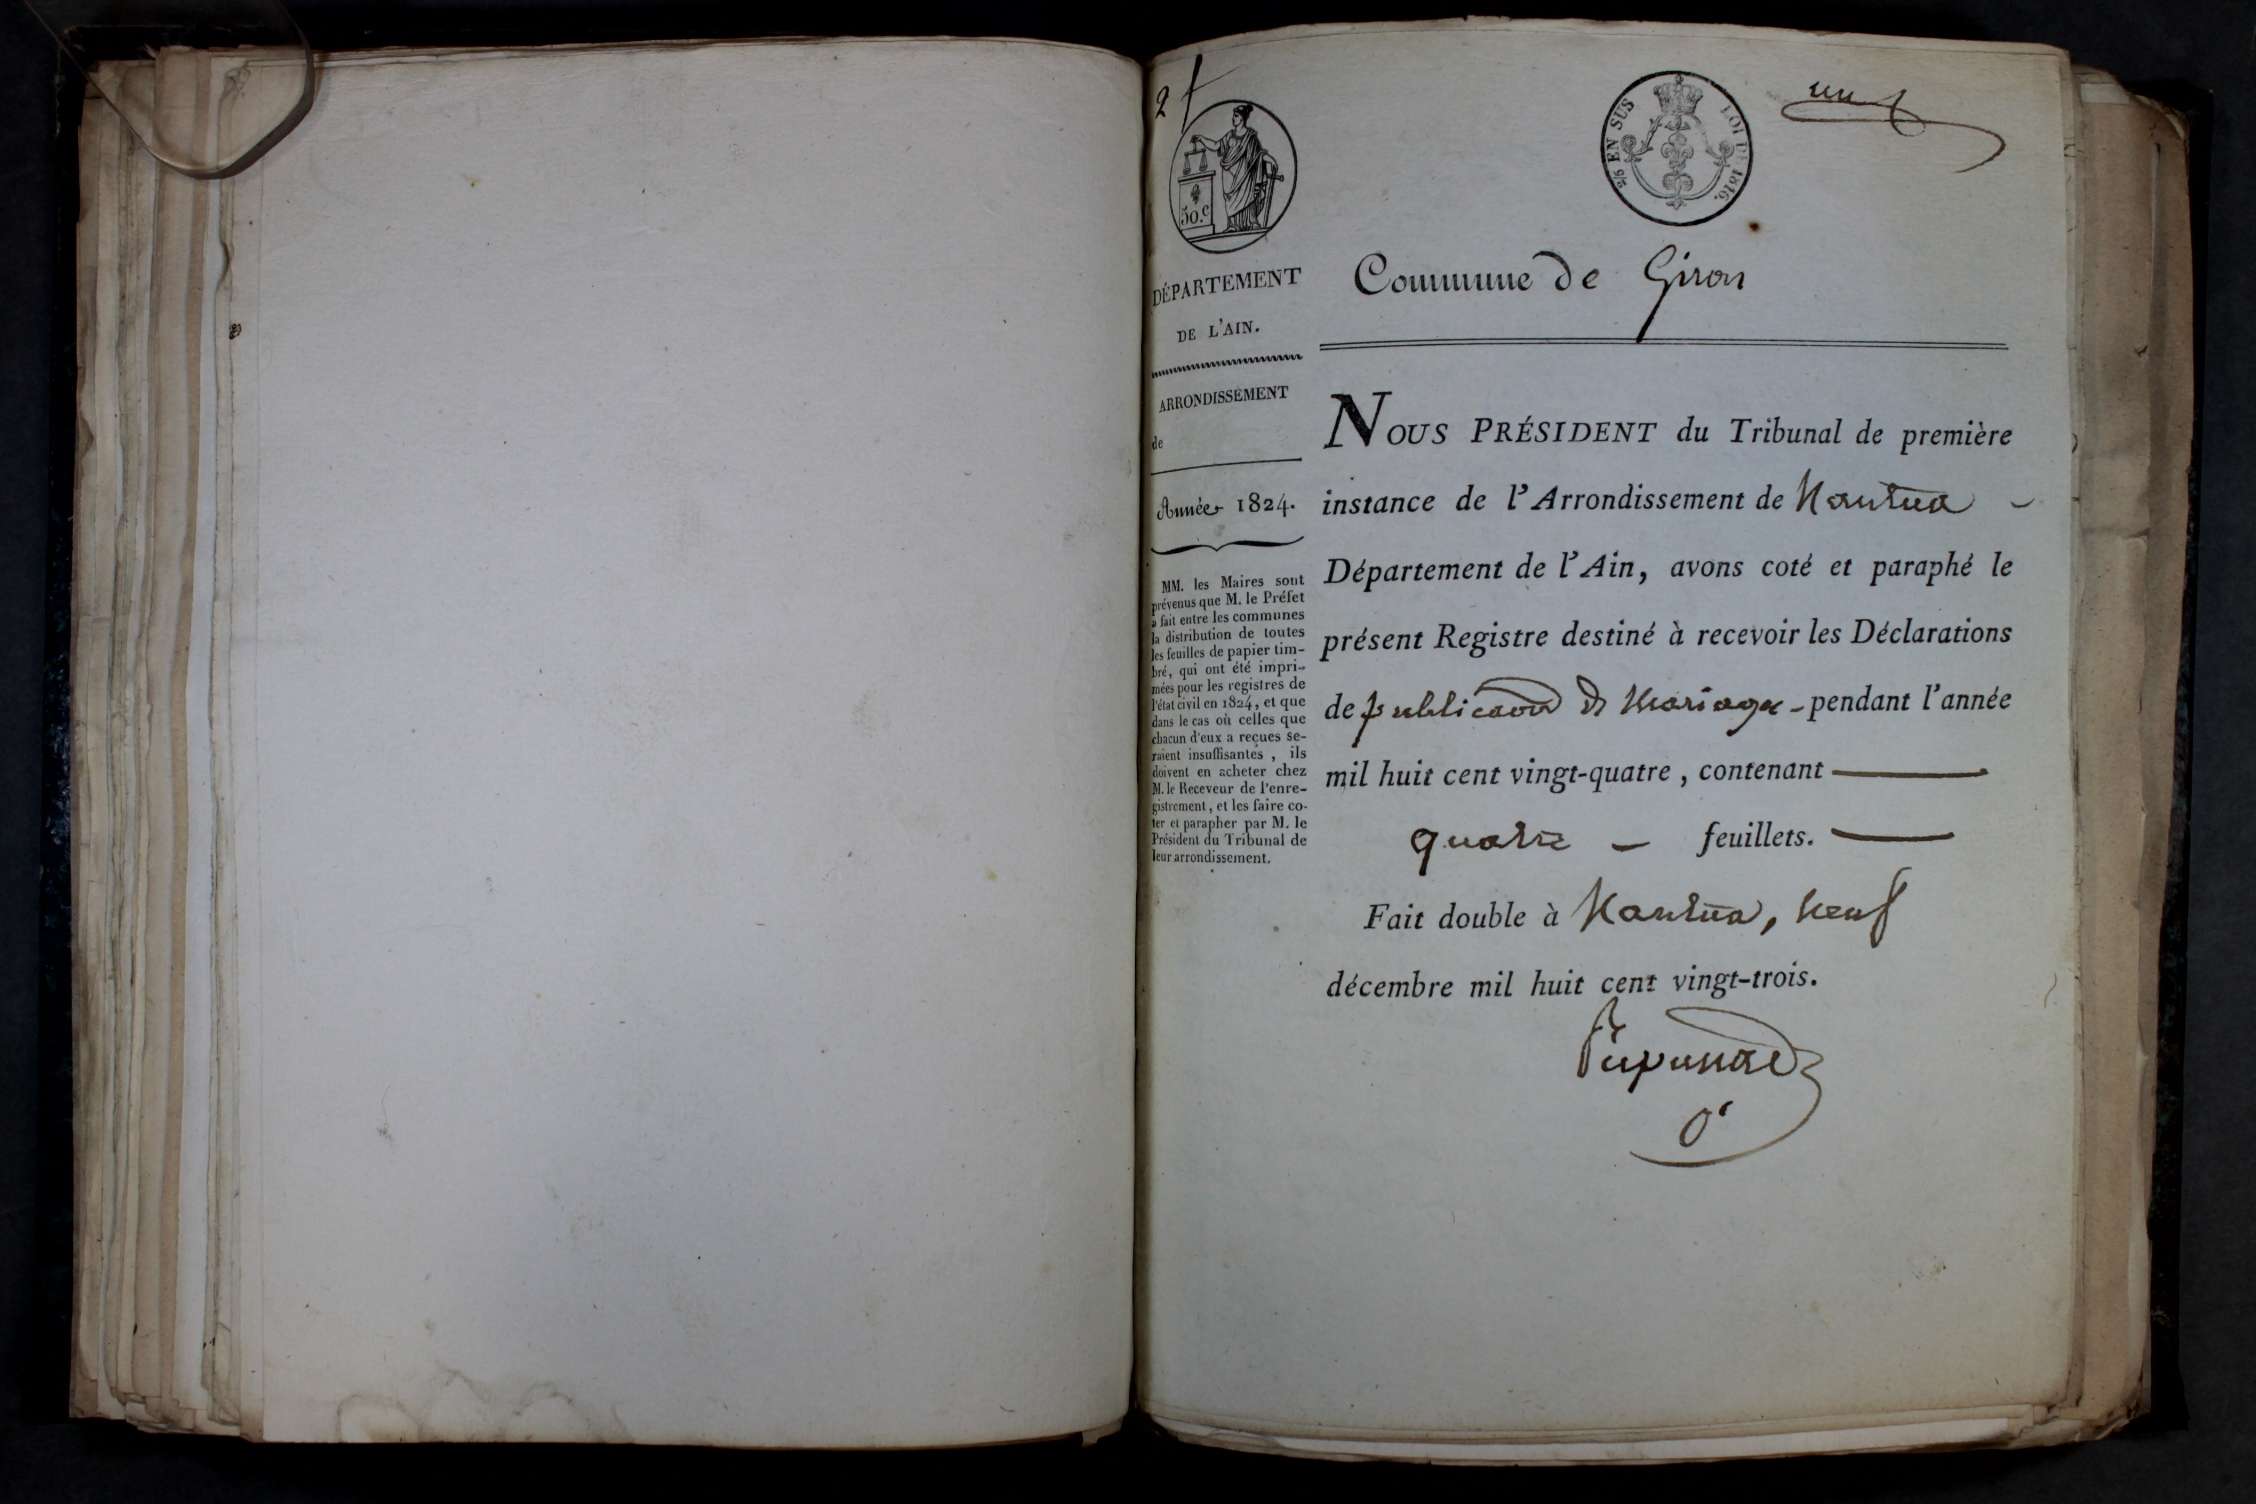 2
50.c
2/5 EN SUS
LOI DE 1816.
un
DÉPARTEMENT
DE L'AIN.
ARRONDISSEMENT
de
Année 1824.
MM. les Maires sont
prévenus que M. le Préfet
a fait entre les communes
la distribution de toutes
les feuilles de papier tim-
bré, qui ont été impri-
mées pour les registres de
l'état civil en 1824, et que
dans le cas où celles que
chacun d'eux a reçues se-
raient insuffisantes, ils
doivent en acheter chez
M. le Receveur de l'enre-
gistrement, et les faire co-
ter et parapher par M. le
Président du Tribunal de
leur arrondissement.
Commune de Giron
NOUS PRÉSIDENT du Tribunal de première
instance de l'Arrondissement de Nantua
Département de l'Ain, avons coté et paraphé le
présent Registre destiné à recevoir les Déclarations
de publicaon de Mariage - pendant l'année
mil huit cent vingt-quatre, contenant
quatre - feuillets.
Fait double à Nantua, neuf
décembre mil huit cent vingt-trois.